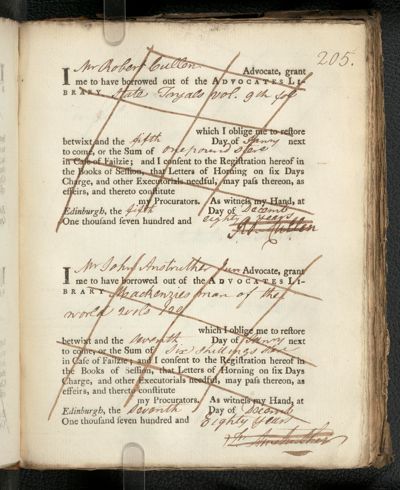 205.
I Mr Robert Cullen Advocate, grant
me to have borrowed out of the ADVOCATES LI-
BRARY State Tryals vol. 9th fol
which I oblige me to reſtore
betwixt and the fifth Day of Janry next
to come, or the Sum of one pound ster
in Caſe of Failzie; and I conſent to the Regiſtration hereof in
the Books of Seſſion, that Letters of Horning on ſix Days
Charge, and other Executorials needful, may paſs thereon, as
effeirs, and thereto conſtitute
my Procurators. As witneſs my Hand, at
Edinburgh, the fifth Day of Decemb
One thouſand ſeven hundred and eighty years
Cullen
I Mr John Anstruther Jun Advocate, grant
me to have borrowed out of the ADVOCATES LI-
BRARY Mackenzies man of the
world vols
which I oblige me to reſtore
betwixt and the seventh Day of Janry next
to come, or the Sum of Six shillings ster
in Caſe of Failzie; and I conſent to the Regiſtration hereof in
the Books of Seſſion, that Letters of Horning on ſix Days
Charge, and other Executorials needful, may paſs thereon, as
effeirs, and thereto conſtitute
my Procurators. As witneſs my Hand, at
Edinburgh, the Seventh Day of Decemb
One thouſand ſeven hundred and Eighty years
Jo. Anstruther